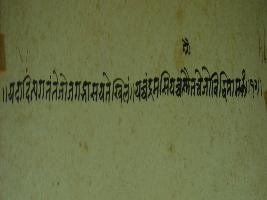 ॥यदादित्यगतं तेजो जगद्भासयतेखिलं॥यच्चंद्रमसियच्चाग्नौतत्तेजोविद्धिमामकं॥१५॥